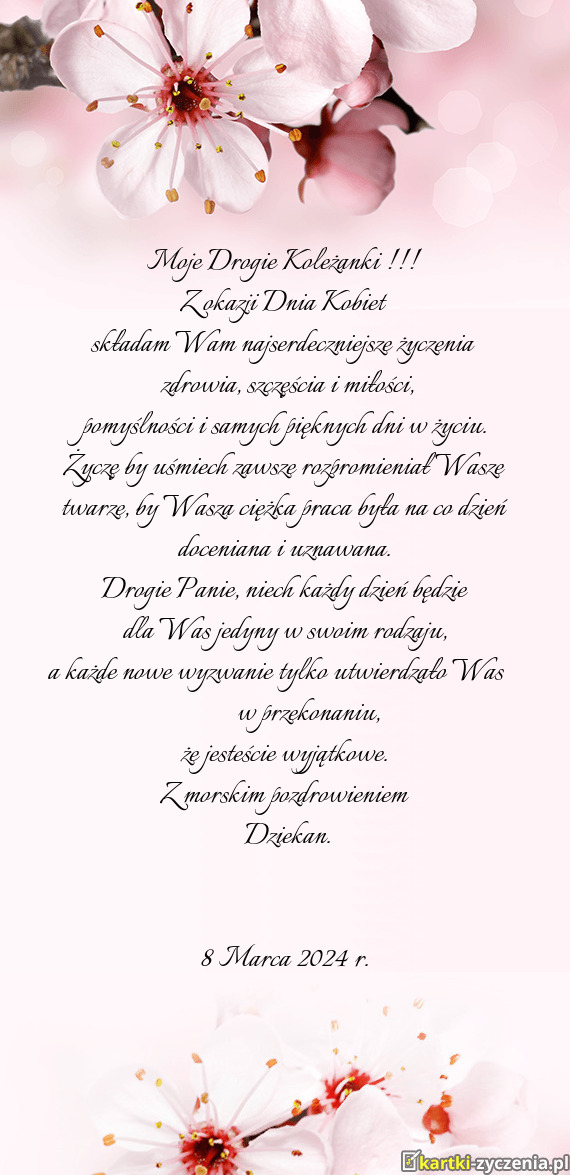 Moje Drogie Koleżanki !!!
Z okazji Dnia Kobiet
składam Wam najserdeczniejsze życzenia
zdrowia, szczęścia i miłości,
pomyślności i samych pięknych dni w życiu.
Życzę by uśmiech zawsze rozpromieniał Wasze
twarze, by Wasza ciężka praca była na co dzień
doceniana i uznawana.
Drogie Panie, niech każdy dzień będzie
dla Was jedyny w swoim rodzaju,
a każde nowe wyzwanie tylko utwierdzało Was
w przekonaniu,
że jesteście wyjątkowe.
Z morskim pozdrowieniem
Dziekan.
8 Marca 2024 r.
kartki-zyczenia.pl